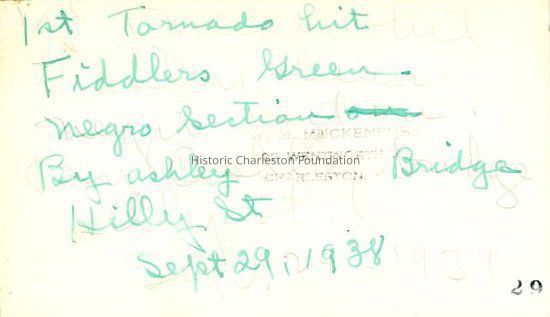 1st Tornado hit
Fiddlers Green.
Negro Section
By Ashley Bridge
Hilly St
Sept 29, 1938
Historic Charleston Foundation
CHARLESTON.
29